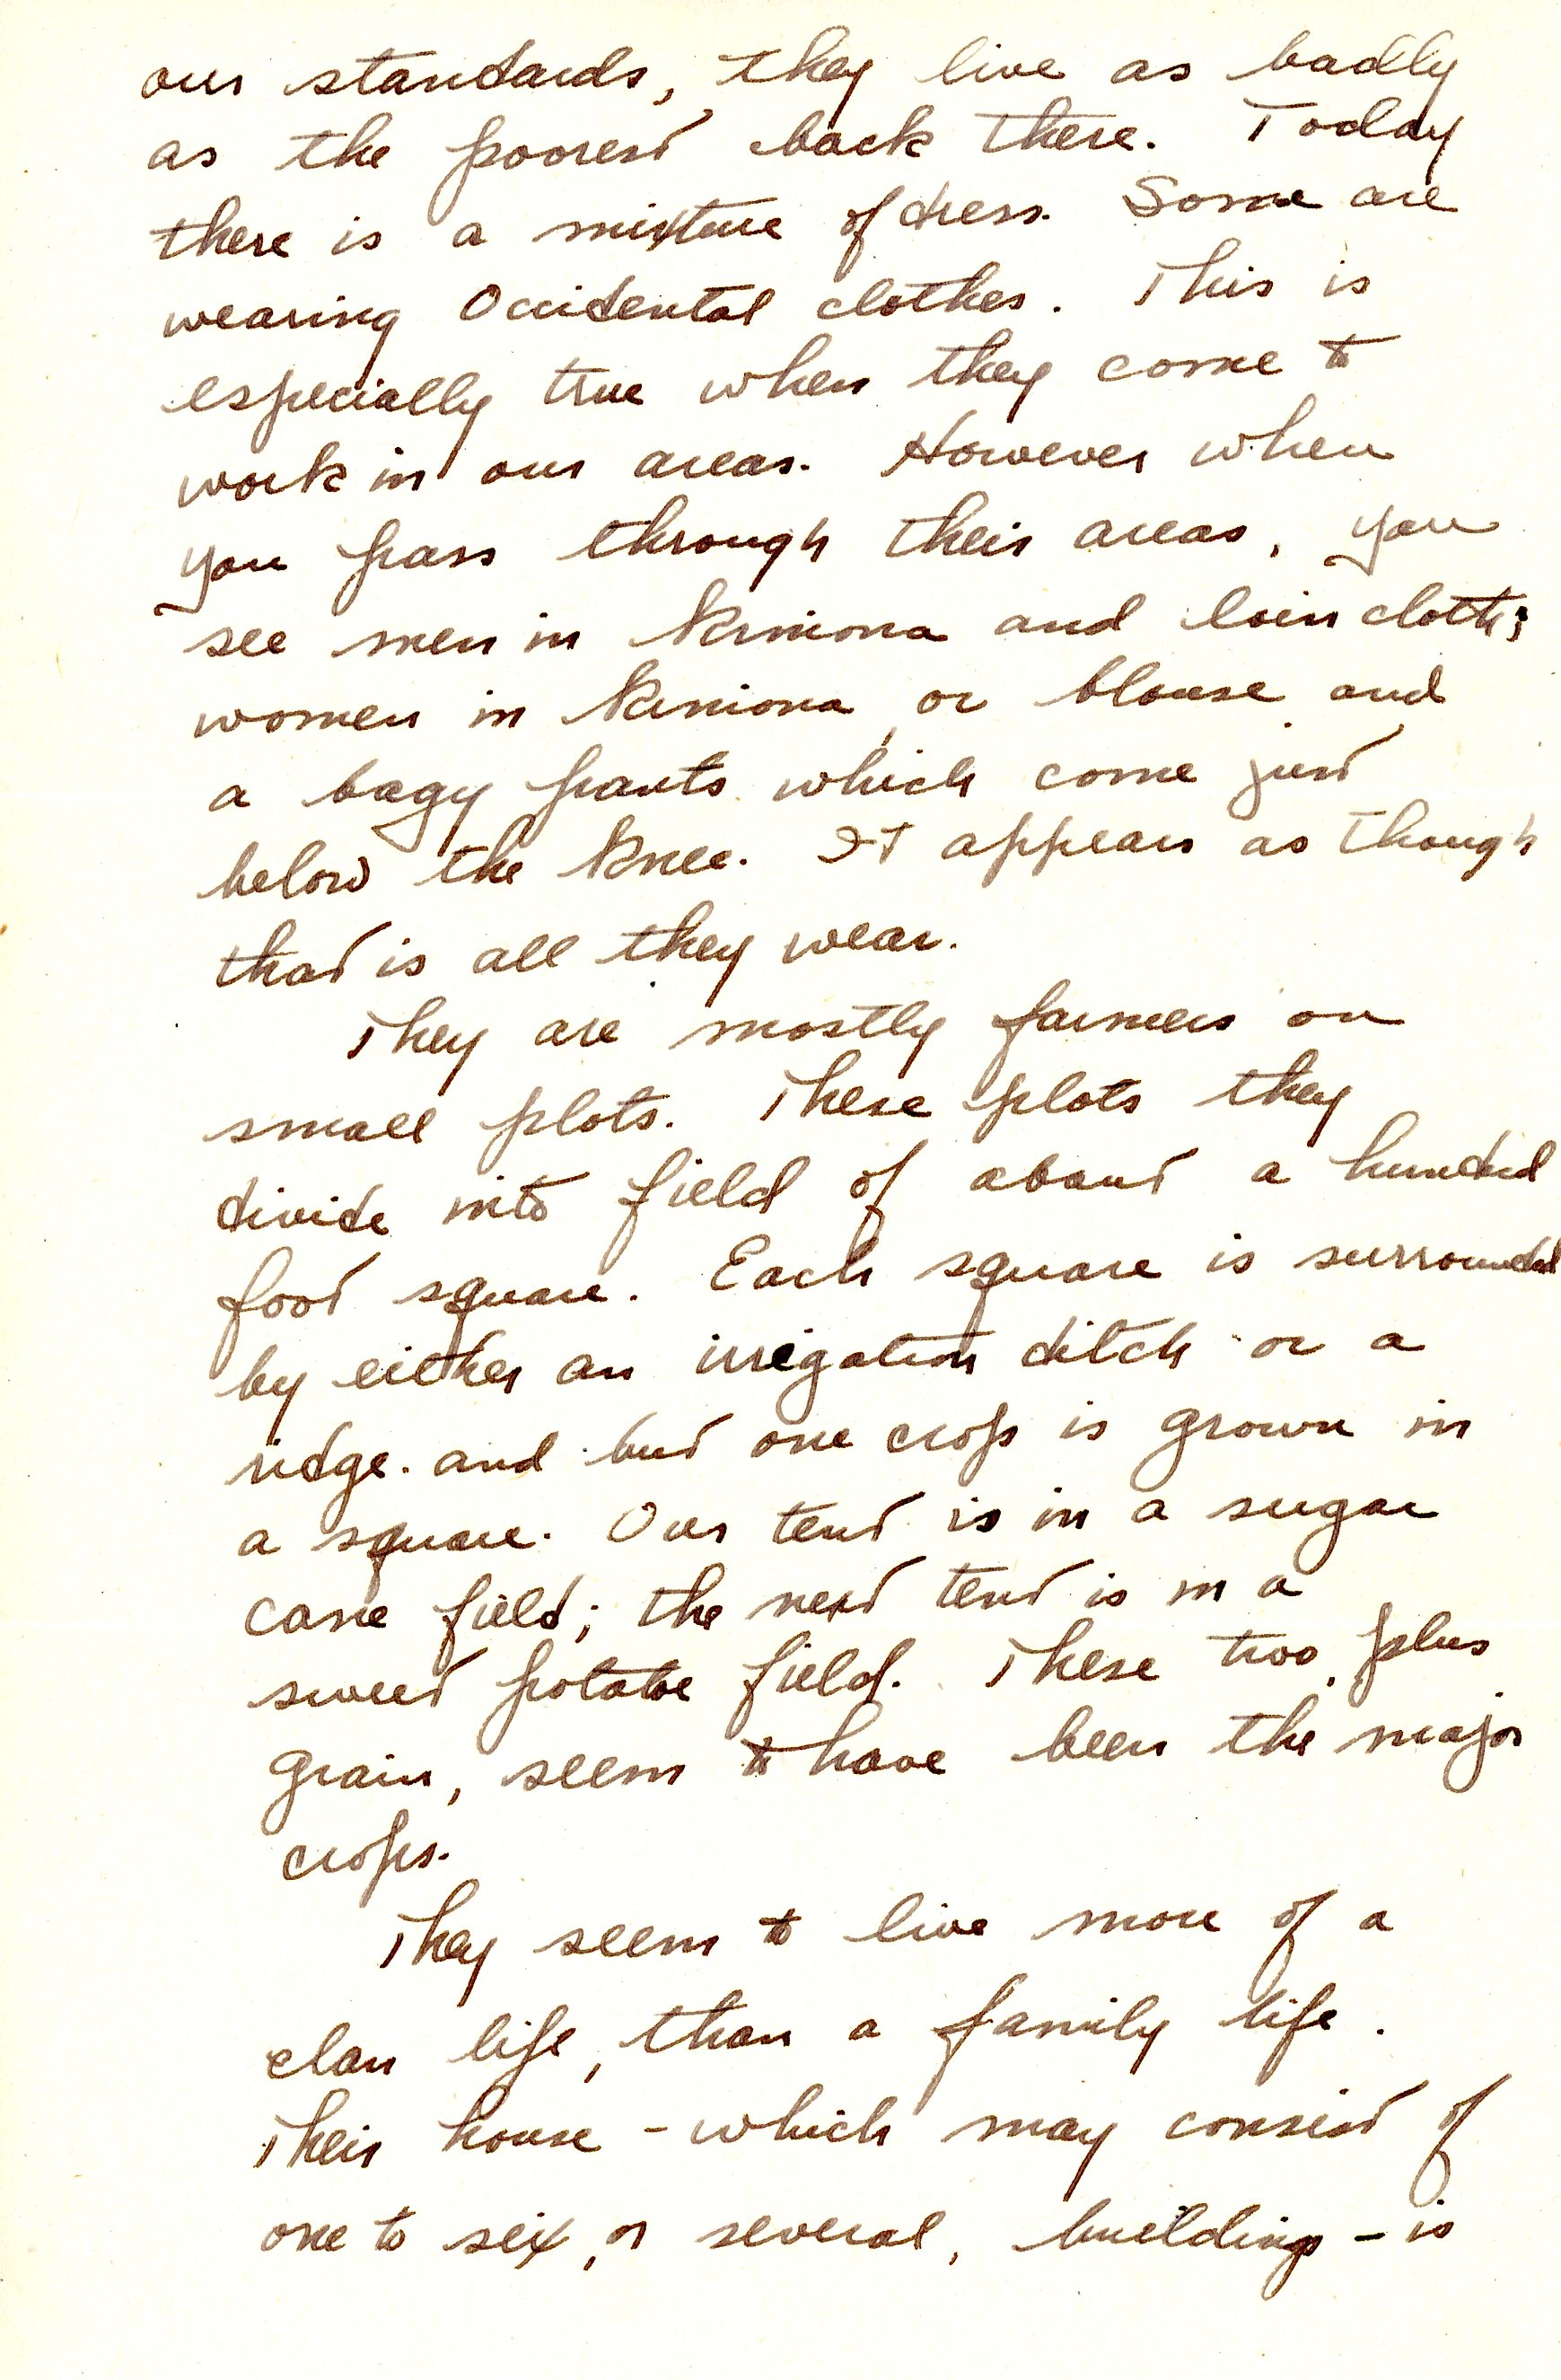 our standards, they live as badly
as the poorest back there. Today
there is a mixture of dress. Some are
wearing Occidental clothes. This is
especially true when they come to
work in our areas. However when
you pass through their areas, you
see men in kimona and loin cloth;
women in kimona, or blouse and
a bagy pants which come just
below the knee. It appears as though
that is all they wear.
They are mostly farmers on
small plots. These plots they
divide into field of about a hundred
foot square. Each square is surrounded
by either an irrigation ditch or a
ridge. and but one crop is grown in
a square. Our tent is in a sugar
cane field; the next tent is in a
sweet potatoe field. These two, plus
grain, seem to have been the major
crops.
They seem to live more of a
clan life, than a family life.
Their house - which may consist of
one to six, or several, buildings - is